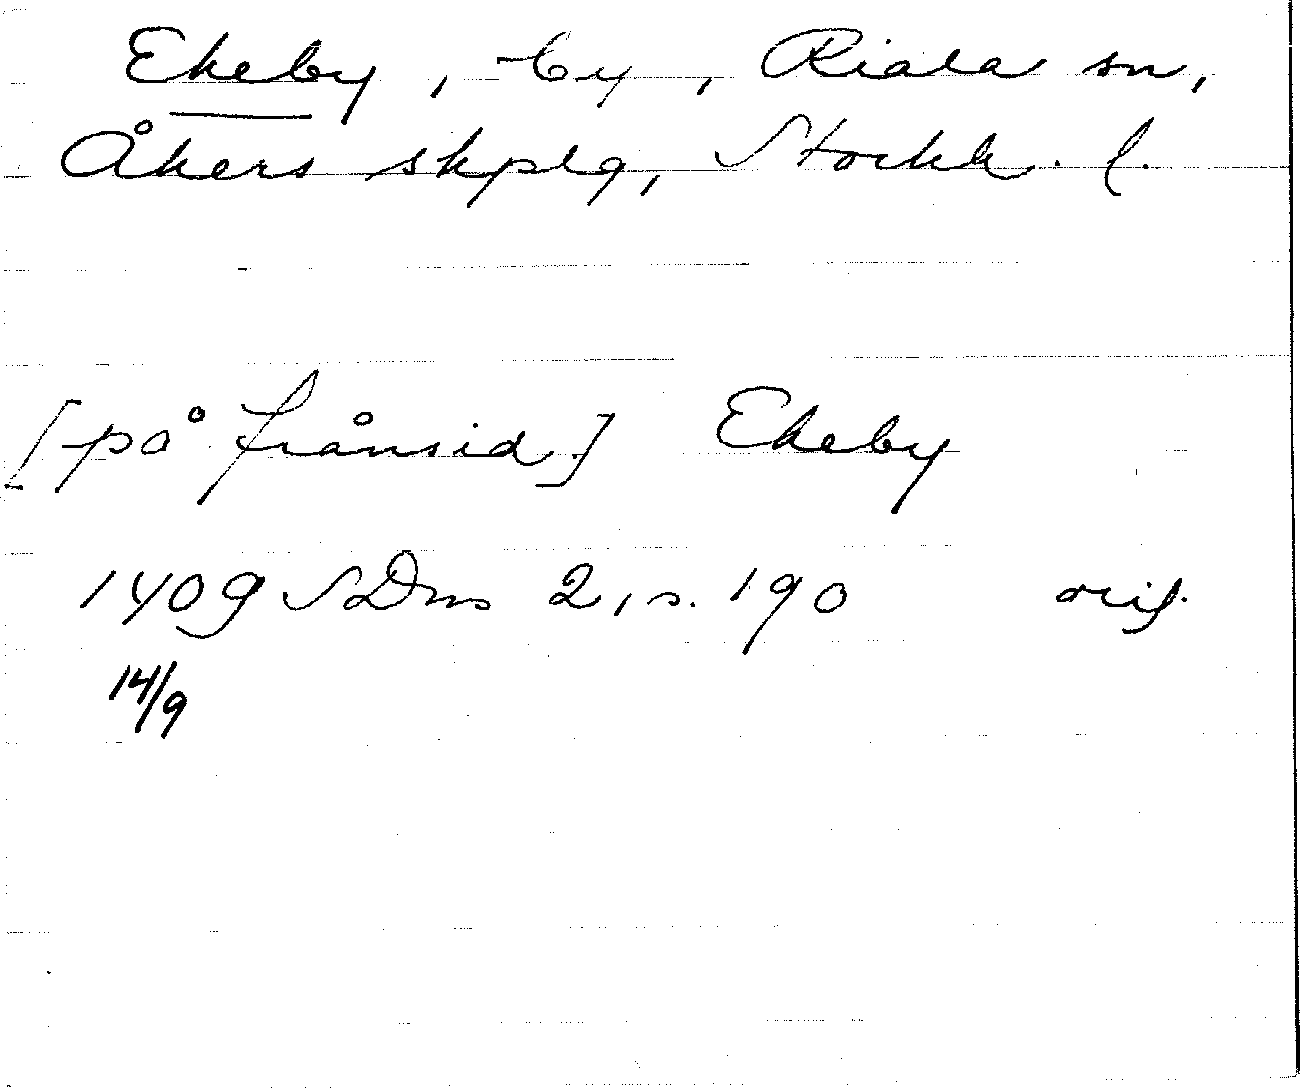 Ekeby, by, Riala sn,
Åkers skplg, Stockh. l.
[på frånsid] Ekeby
1409 SDns 2, s. 190 orig.
14/9